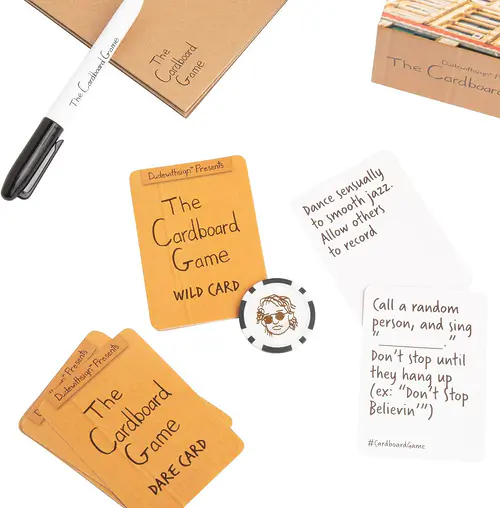 The
Cardboard
Game
The Cardboard Game
Dudewithsign™ Presents
The Cardboard
Dudewithsign™ Presents
The
Cardboard
Game
WILD CARD
Dance sensually
to smooth jazz.
Allow others
to record
Call a random
person, and sing
"__________."
Don't stop until
they hang up
(ex: "Don't Stop
Believin'")
#CardboardGame
Presents
Dudewithsign™ Presents
The
Cardboard
Game
DARE CARD